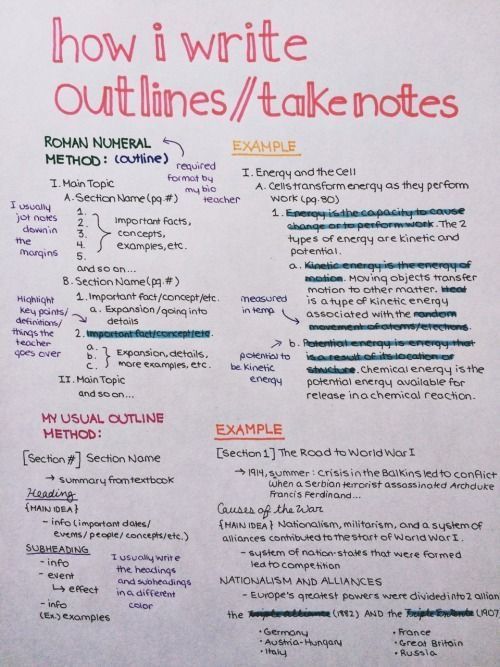 how i write
outlines//take notes
ROMAN NUMERAL
METHOD: (outline)
required
format by
my bio
teacher
I. Main Topic
A. Section Name (pg.#)
1.
2.
3.
4.
5.
Important facts,
concepts,
examples, etc.
and so on...
I usually
jot notes
down in
the
margins
B. Section Name (pg.#)
1. Important fact/concept/etc.
a. Expansion/going into
details
2. Important fact/concept/etc.
a.
b.
c.
Expansion, details,
more examples, etc.
II. Main Topic
and so on...
Highlight
key points/
definitions/
things the
teacher
goes over
EXAMPLE
I. Energy and the Cell
A. Cells transform energy as they perform
work (pg. 80)
1. Energy is the capacity to cause
change or to perform work. The 2
types of energy are kinetic and
potential.
a. Kinetic energy is the energy of
motion. Moving objects transfer
motion to other matter. Heat
is a type of kinetic energy
associated with the random
movement of atoms/electrons.
measured
in temp
b. Potential energy is energy that
is a result of its location or
structure. Chemical energy is the
potential energy available for
release in a chemical reaction.
potential to
be kinetic
energy
MY USUAL OUTLINE
METHOD:
[Section #] Section Name
→ summary from textbook
Heading
{MAIN IDEA}
- info (important dates/
events/people/concepts/etc.)
SUBHEADING
- info
- event
↳ effect
- info
(Ex.) examples
I usually write
the headings
and subheadings
in a different
color
EXAMPLE
[Section 1] The Road to World War I
→ 1914, summer: Crisis in the Balkins led to conflict
when a Serbian terrorist assassinated Archduke
Francis Ferdinand...
Causes of the War
{MAIN IDEA} Nationalism, militarism, and a system of
alliances contributed to the start of World War I.
- system of nation-states that were formed
led to competition
NATIONALISM AND ALLIANCES
- Europe's greatest powers were divided into 2 allian
the Triple Alliance (1882) AND the Triple Entente (1907)
• Germany
• Austria-Hungary
• Italy
• France
• Great Britain
• Russia